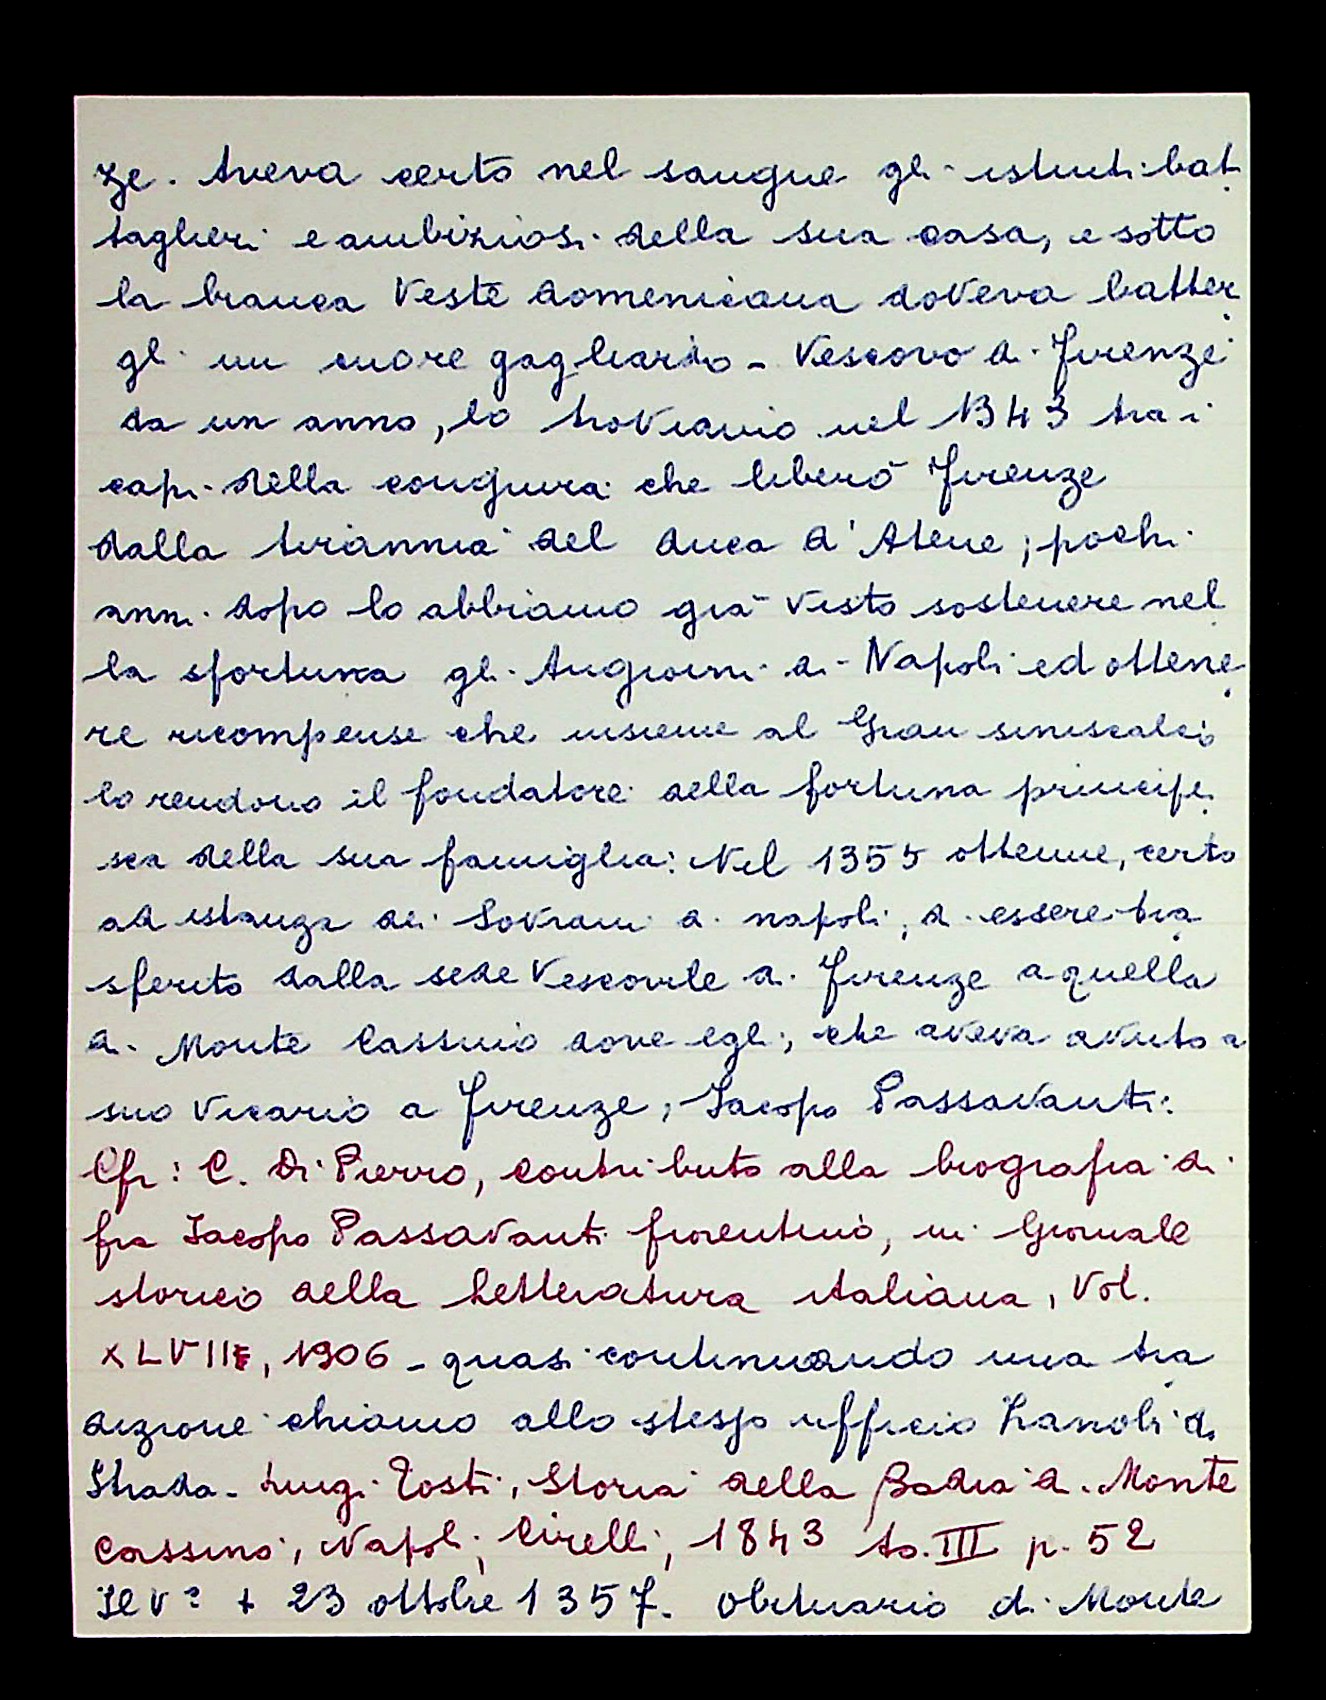 ze. Aveva certo nel sangue gli istinti bat
taglieri e ambiziosi della sua casa, e sotto
la bianca veste domenicana doveva batter
gli un cuore gagliardo - Vescovo di Firenze
da un anno, lo troviamo nel 1343 tra i
capi della congiura che liberò Firenze
dalla tirannia del duca d'Atene; pochi
anni dopo lo abbiamo già visto sostenere nel
la sfortuna gli Angioini di Napoli ed ottene
re ricompense che insieme al Gran siniscalco
lo rendono il fondatore della fortuna principe
sca della sua famiglia: Nel 1355 ottenne, certo
ad istanza dei Sovrani di napoli, di essere tra
sferito dalla sede Vescovile di Firenze a quella
di Monte Cassino dove egli, che aveva avuto a
suo Vicario a Firenze, Iacopo Passavanti:
Cfr: C. Di Pierro, contributo alla biografia di
fra Iacopo Passavanti fiorentino, in Giornale
storico della Letteratura italiana, Vol.
XLVII, 1906 - quasi continuando una tra
dizione chiamò allo stesso ufficio Zanobi da
Strada - Luigi Tosti, Storia della Badia di Monte
cassino, Napoli, Cirelli, 1843 to. III p. 52
Il V° + 23 ottobre 1357. Obituario di Monte